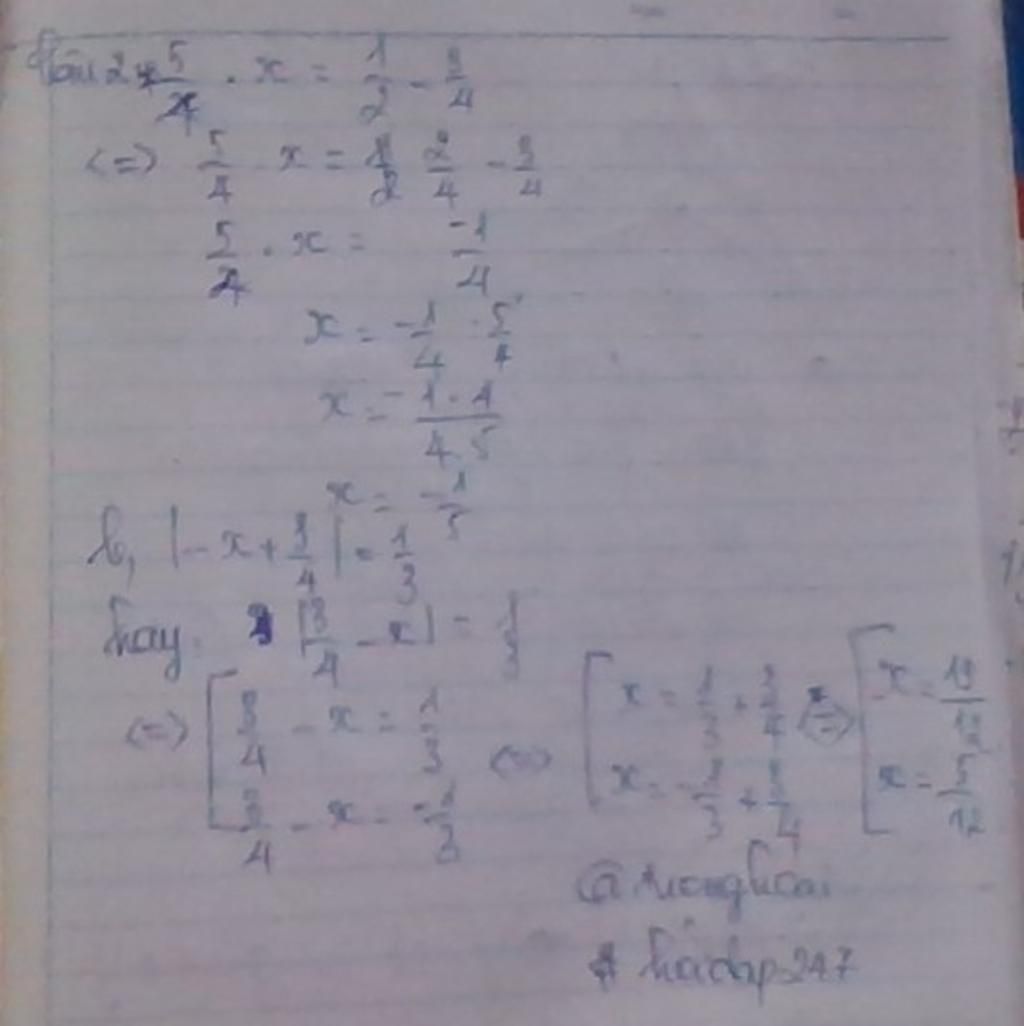 Bài 2 5/4 . x = 1/2 - 3/4
<=> 5/4 x = 2/4 - 3/4
5/4 . x = -1/4
x = -1/4 : 5/4
x = -1.4/4.5
x = -1/5
b, |-x + 3/4| = 1/3
hay |3/4 - x| = 1/3
<=> [ 3/4 - x = 1/3 <=> [ x = 1/3 + 3/4 <=> [ x = 13/12
3/4 - x = -1/3 x = -1/3 + 3/4 x = 5/12
# hoidap247